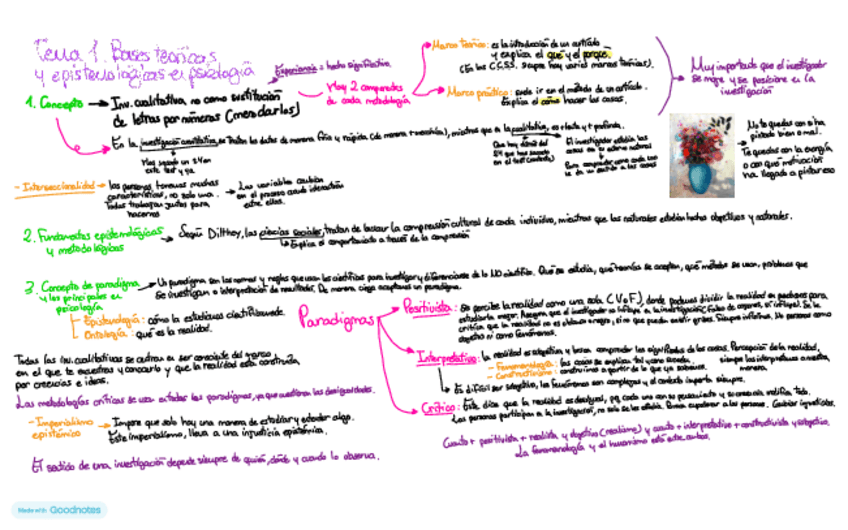 Tema 1. Bases teóricas
y epistemológicas en psicología
Experiencia = hecho significativo
Hay 2 componentes
de cada metodología
Marco teórico: es la introducción de un artículo
y explica el qué y el porqué.
(En las CCSS, siempre hay varios marcos teóricos).
Marco práctico: suele ir en el método de un artículo.
Explica el cómo hacer las cosas.
Muy importante que el investigador
se moje y se posicione en la
investigación
1. Concepto → Inv. cualitativa, no como sustitución
de letras por números (mencionarlos)
En la investigación cuantitativa, se tratan los datos de manera fría y rápida (de manera + mecánica), mientras que en la cualitativa, es + lenta y + profunda.
El investigador estudia las
cosas en su entorno natural
No te quedas con si ha
pintado bien o mal.
Te quedas con la energía
o con qué motivación
ha llegado a pintar eso
- Interseccionalidad → las personas tenemos muchas
características, no solo una.
Todas trabajan juntas para
hacernos
Las variables cambian
en el proceso cuando interactúan
entre ellas.
2. Fundamentos epistemológicos
y metodológicos
Según Dilthey, las ciencias sociales, tratan de buscar la comprensión cultural de cada individuo, mientras que las naturales estudian hechos objetivos y naturales.
Explica el comportamiento a través de la comprensión
3. Concepto de paradigma
y los principales en
psicología
Un paradigma son las normas y reglas que usan los científicos para investigar y diferenciarse de lo NO científico. Qué se estudia, qué teorías se aceptan, qué métodos se usan, problemas que
se investigan e interpretación de resultados. De manera ciega aceptamos un paradigma.
Epistemología: cómo la estudiamos científicamente
Ontología: qué es la realidad.
Paradigmas
Positivista: Se percibe la realidad como una sola (V o F), donde podemos dividir la realidad en pedazos para
estudiarla mejor.
Interpretativo: la realidad es subjetiva y busca comprender los significados de las cosas. Percepción de la realidad,
- Fenomenología: las cosas se explican tal y como suceden.
- Constructivismo: construimos a partir de lo que ya sabemos.
siempre las interpretamos a nuestra
manera.
Es difícil ser objetivo, los fenómenos son complejos y el contexto importa siempre.
Crítico: Este dice que la realidad es desigual, pq cada uno con su pensamiento y su conciencia modifica todo.
Las personas participan en la investigación, no solo se les estudia. Busca empoderar a las personas. Cambiar injusticias.
Todas las inv. cualitativas se centran en ser consciente del marco
en el que te encuentras y conocerlo y que la realidad está construida,
por creencias e ideas.
Las metodologías críticas se usan en todos los paradigmas, ya que cuestionan las desigualdades.
- Imperialismo
epistémico
Impone que solo hay una manera de estudiar y entender algo.
Este imperialismo, lleva a una injusticia epistémica.
El sentido de una investigación depende siempre de quién, dónde y cuándo lo observa.
Cuanto + positivista + realista y objetivo (realismo) y cuanto + interpretativo + constructivista y subjetivo.
La fenomenología y el humanismo está entre ambos.
Made with Goodnotes